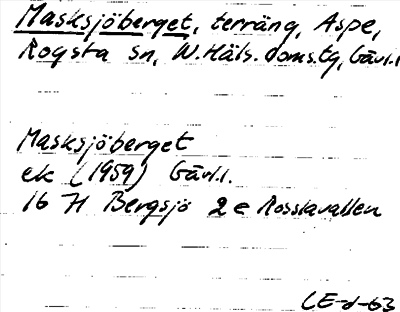 Masksjöberget, terräng, Aspe,
Rogsta sn, N. Häls. doms.tg, Gävl.l
Masksjöberget
ek (1959) Gävl.l.
16 H Bergsjö 2 e Rosslavallen
CE-d-63